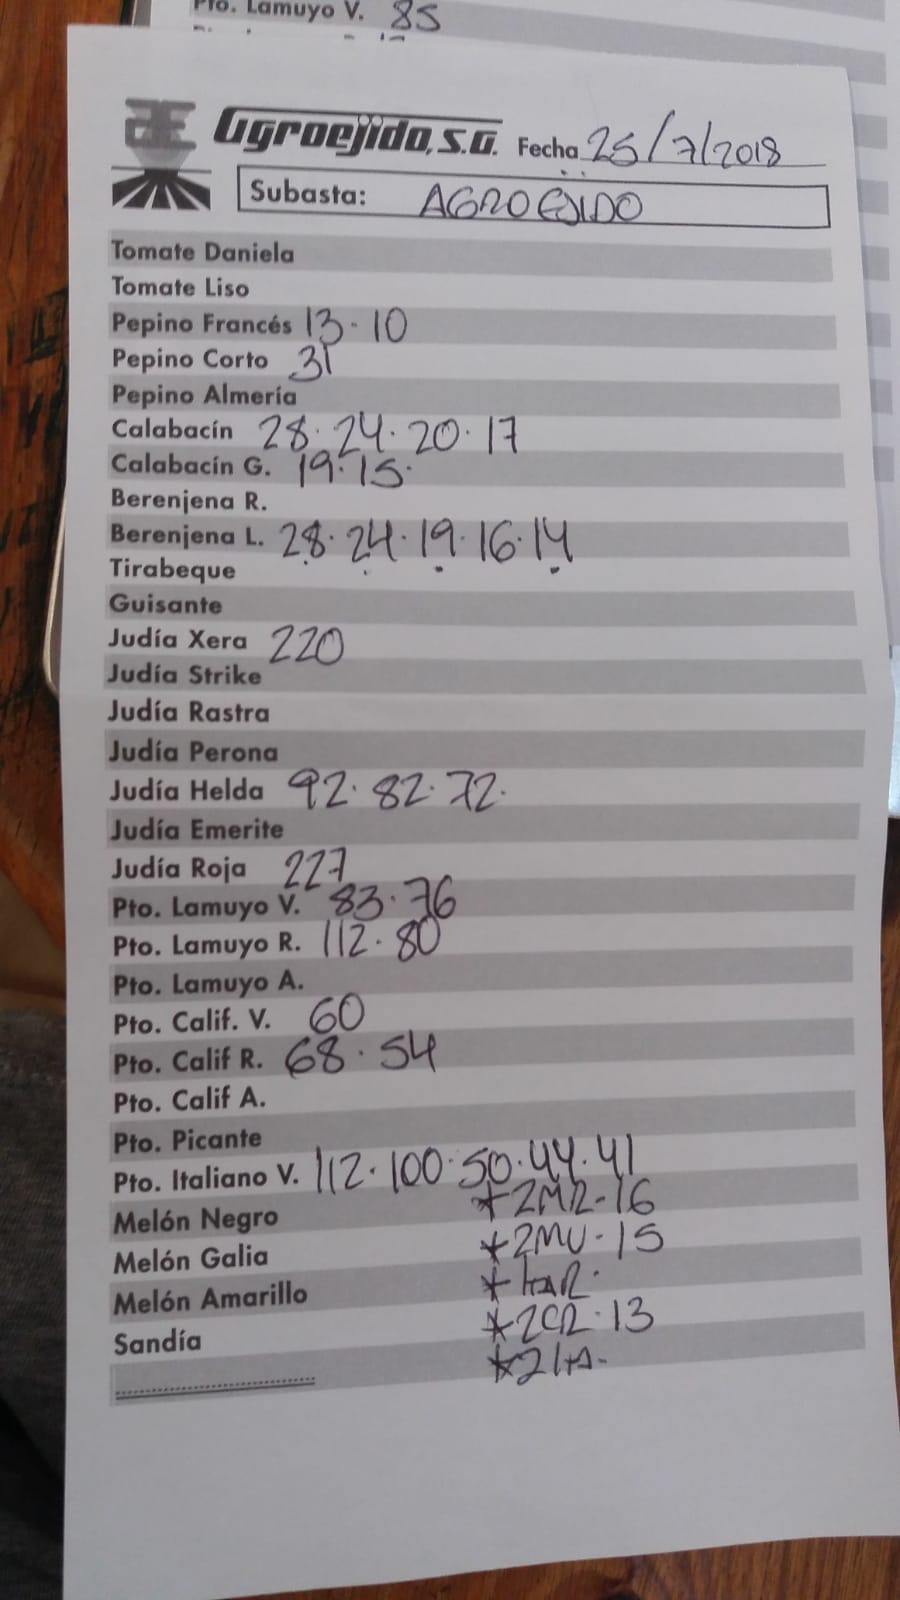 Pto. Lamuyo V. 85
Agroejido, S.A. Fecha 25/7/2018
Subasta: AGROEJIDO
Tomate Daniela
Tomate Liso
Pepino Francés 13·10
Pepino Corto 31
Pepino Almería
Calabacín 28·24·20·17
Calabacín G. 19·15·
Berenjena R.
Berenjena L. 28·24·19·16·14
Tirabeque
Guisante
Judía Xera 220
Judía Strike
Judía Rastra
Judía Perona
Judía Helda 92·82·72·
Judía Emerite
Judía Roja 227
Pto. Lamuyo V. 83·76
Pto. Lamuyo R. 112·80
Pto. Lamuyo A.
Pto. Calif. V. 60
Pto. Calif R. 68·54
Pto. Calif A.
Pto. Picante
Pto. Italiano V. 112·100·50·44·41
Melón Negro *2MR-16
Melón Galia *2MV-15
Melón Amarillo
Sandía *2CR·13